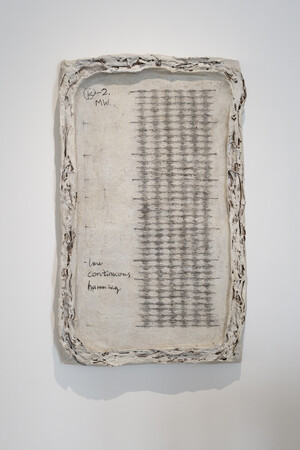 MW.
- low
continuous
humming